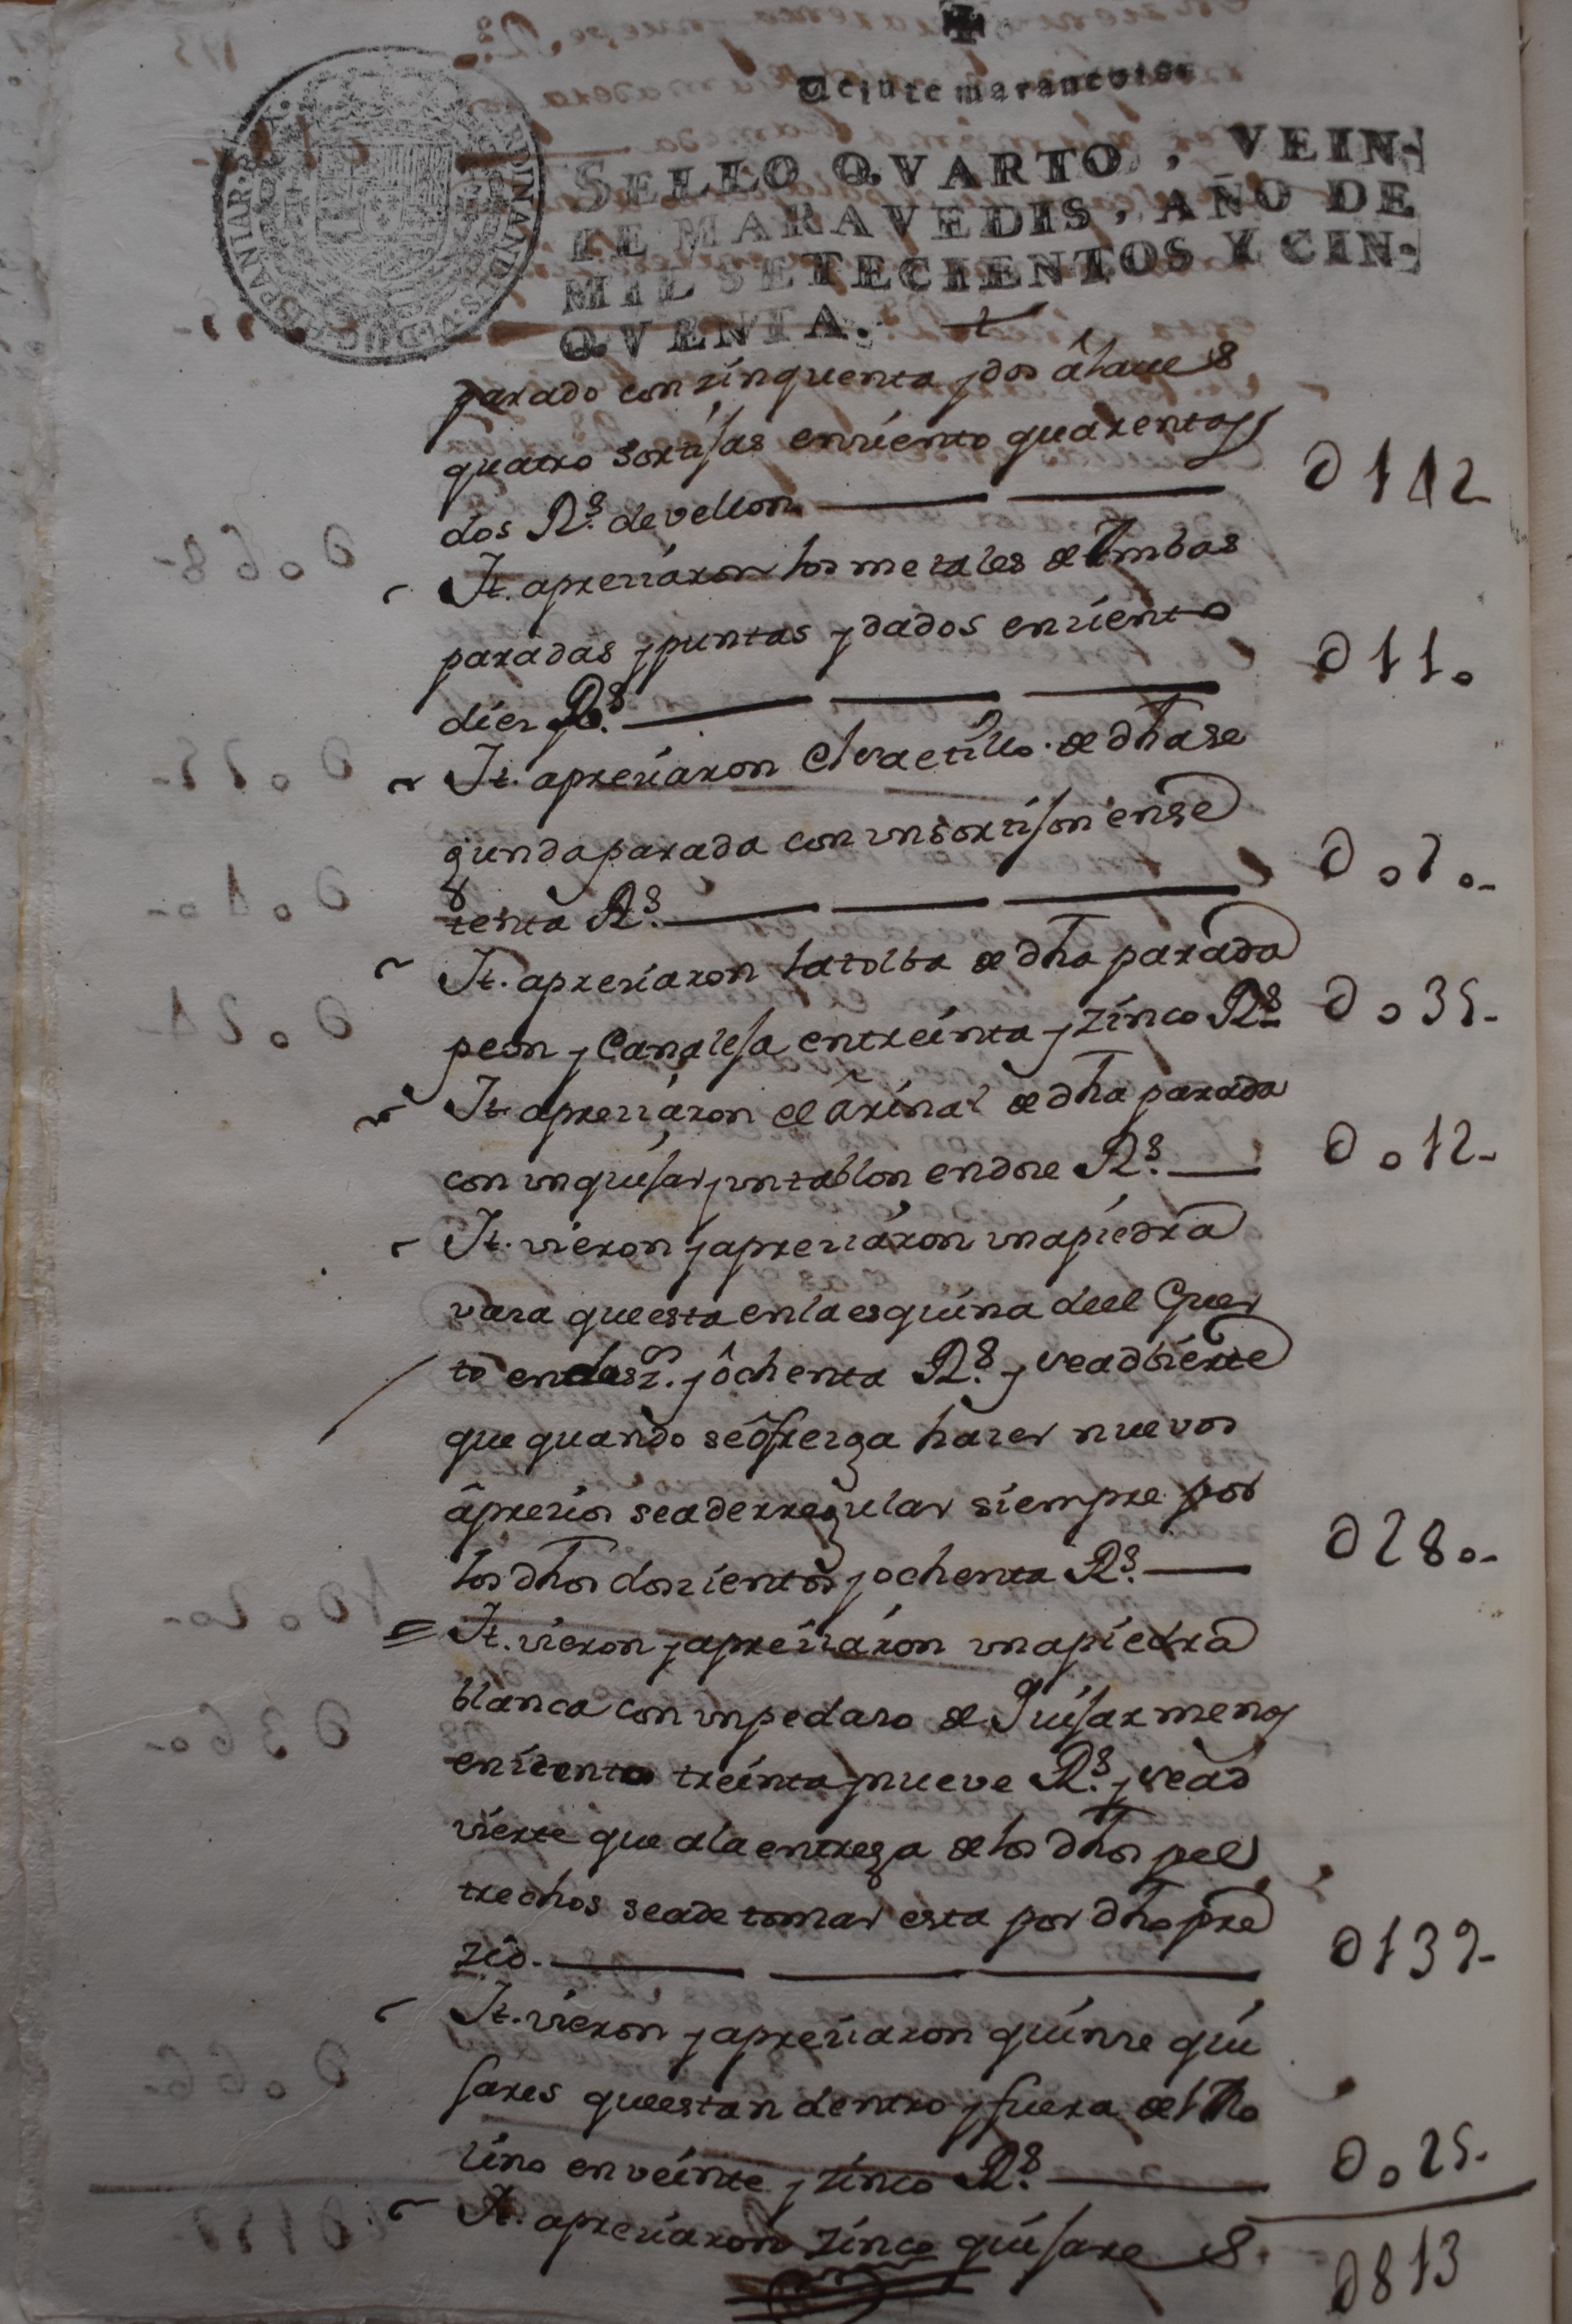 Veinte maravedis
SELLO QVARTO, VEIN-
TE MARAVEDIS, AÑO DE
MIL SETECIENTOS Y CIN-
QVENTA.
parado con zinquenta y dos
quatro sortijas enziento quarenta y
dos Rs. de vellon 0142
It. apreziaron los metales de Ambas
paradas y puntas y dados enziento
diez Rs. 011o
It. apreziaron el de dha se
gunda parada con un sortijon ense
tenta Rs. 0o7o-
It. apreziaron la tolba de dha parada
peon y Canaleja entreinta y zinco Rs 0o35-
It apreziaron el ârinal de dha parada
con un quijar y un tablon endoze Rs. 0o12-
It. vieron y apreziaron una piedra
vaza que esta en la esquina deel Guer
to en dosz.os y ôchenta Rs. y se adbierte
que quando se ôfrezga hazer nuevos
âprezios se a de rregular siempre por
los dhos dozientos y ochenta Rs. 028o-
It. vieron y apreziaron una piedra
blanca con un pedazo de Quijar menos
enziento treinta y nueve Rs. y se ad
vierte que a la entrega de los dhos pel
trechos se a de tomar esta por dho pre
zio. 0139-
It. vieron y apreziaron quinze qui
jares que estan dentro y fuera del Mo
lino en veinte y zinco Rs. 0o25-
It. apreziaron zinco quijares
0813